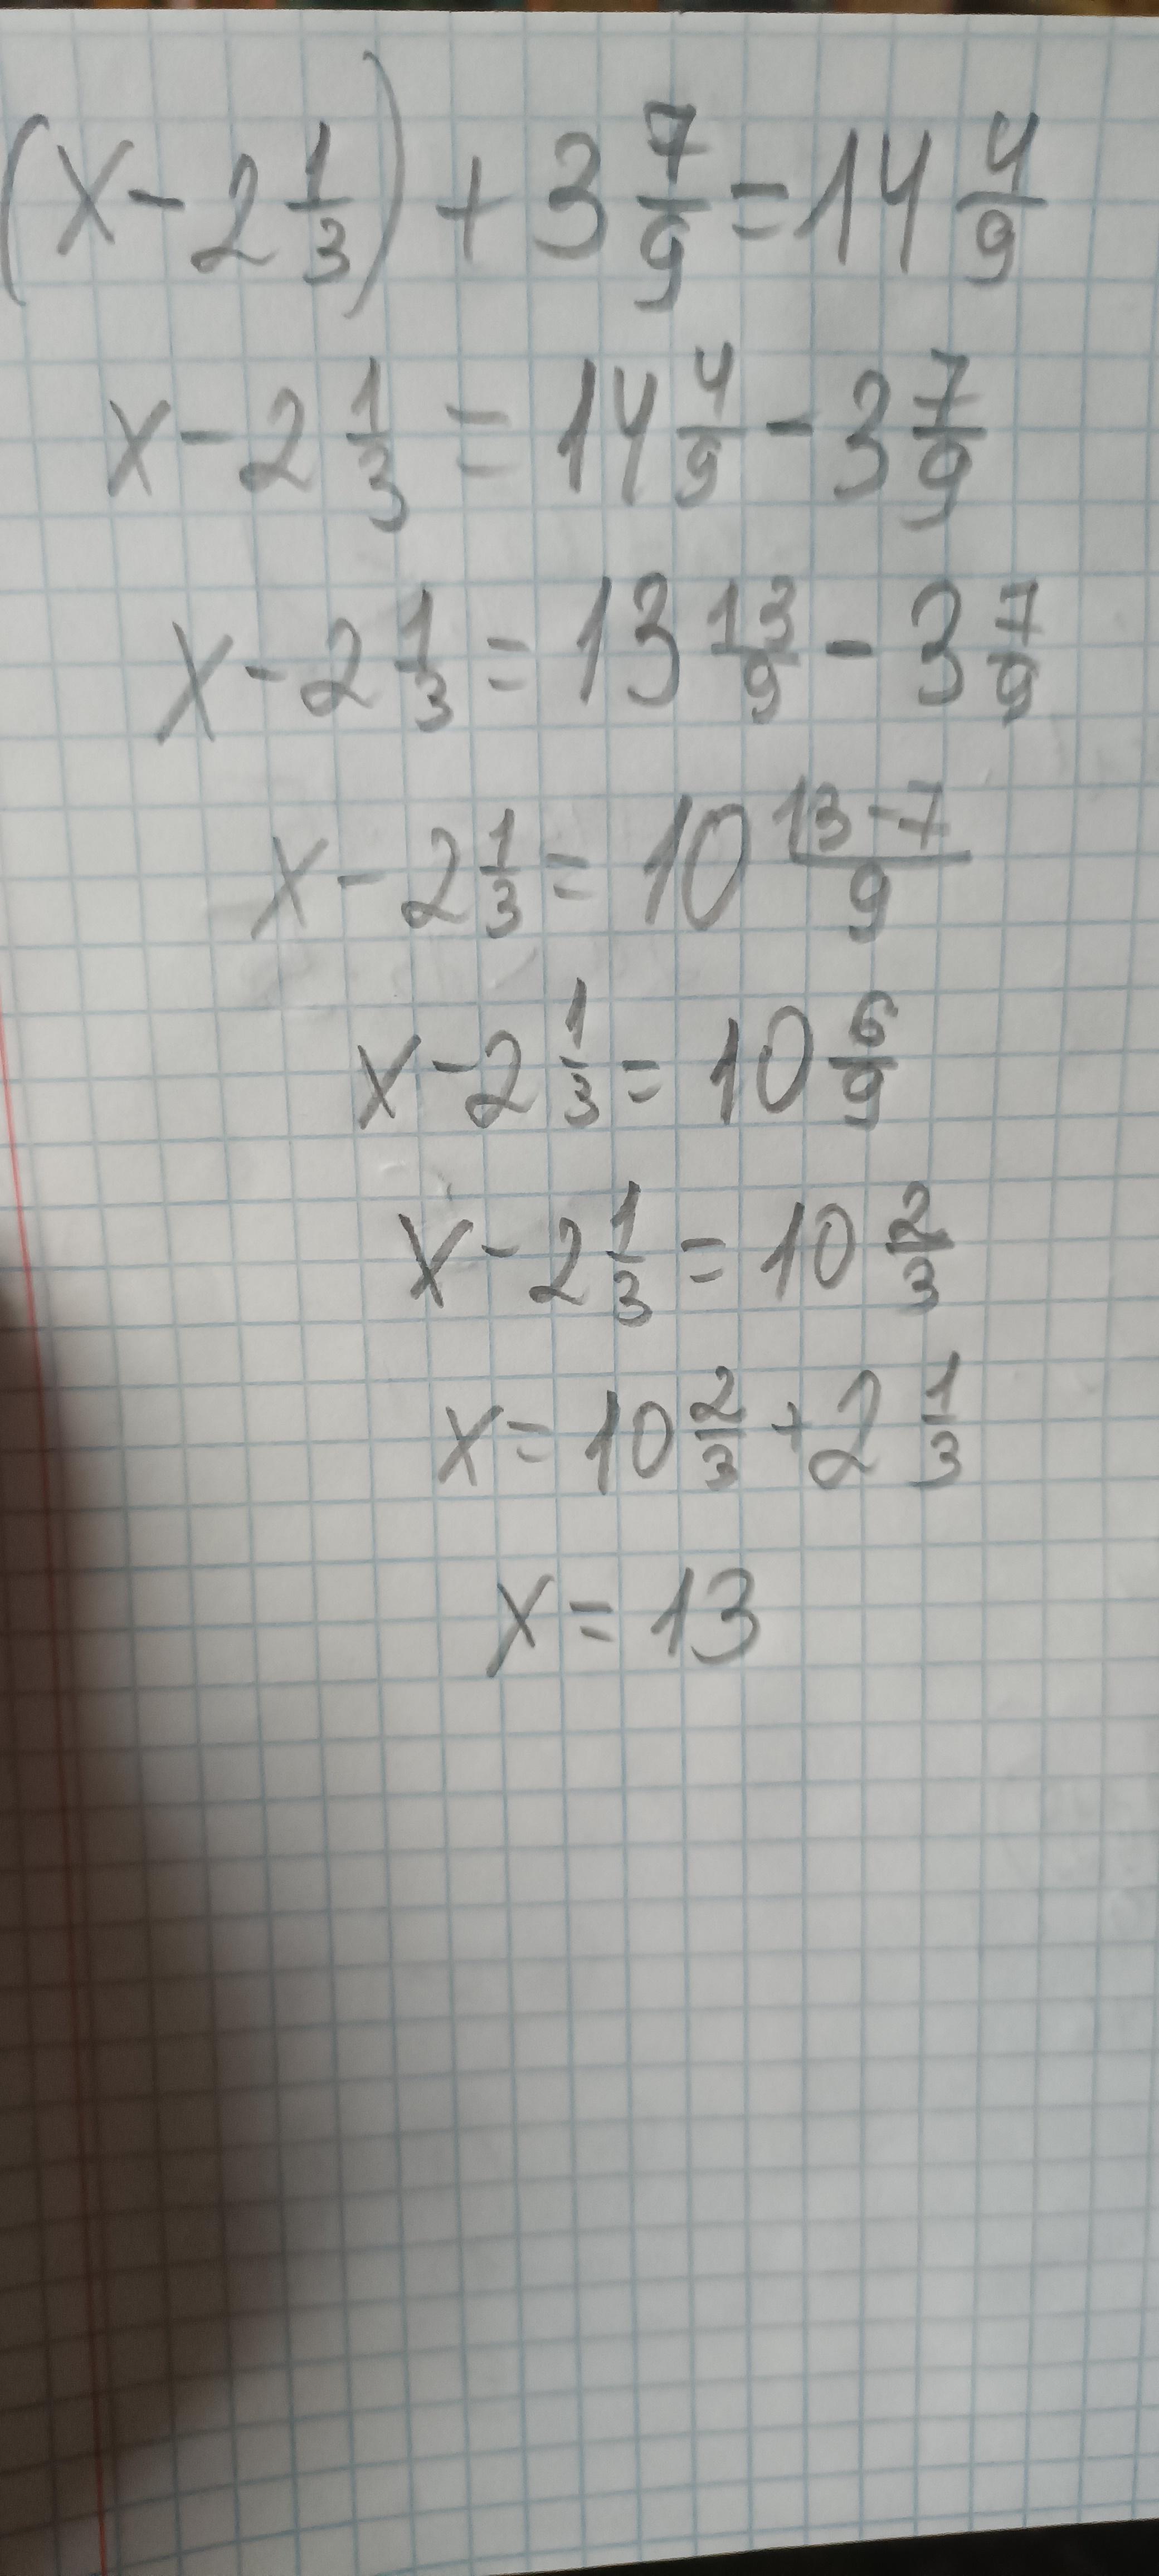 (x - 2 1/3) + 3 7/9 = 14 4/9
x - 2 1/3 = 14 4/9 - 3 7/9
x - 2 1/3 = 13 13/9 - 3 7/9
x - 2 1/3 = 10 (13-7)/9
x - 2 1/3 = 10 6/9
x - 2 1/3 = 10 2/3
x = 10 2/3 + 2 1/3
x = 13